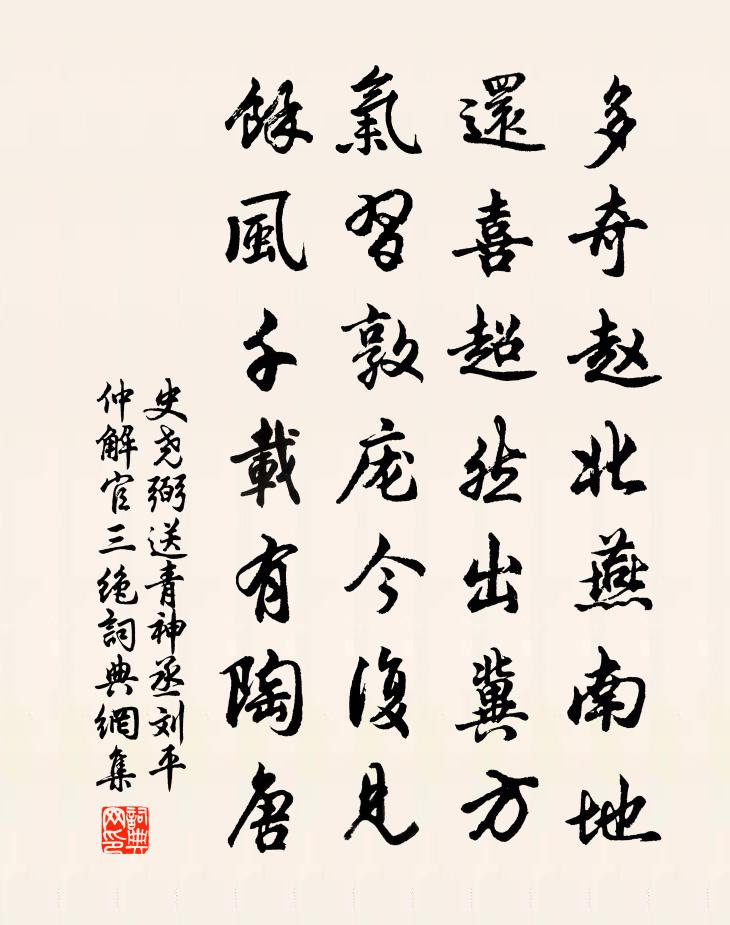 多奇赵北燕南地
還喜超然出冀方
氣習敦庞今復見
餘風千載有陶唐
史尧弼送青神丞刘平
仲解官三绝詞典網集
詞典網印